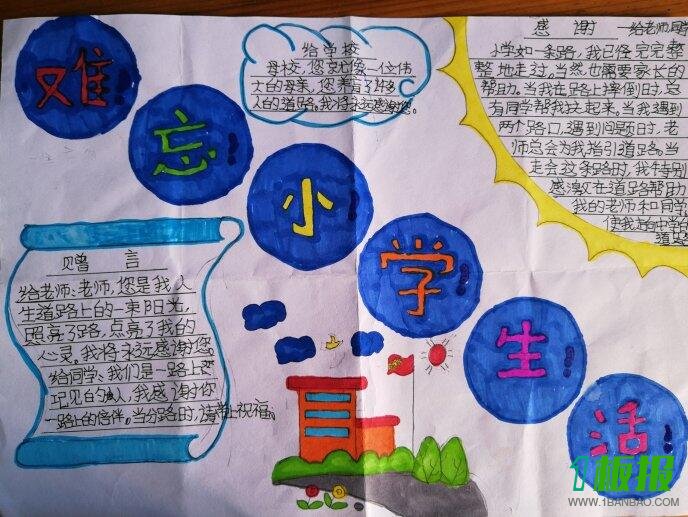 难
忘
小
学
生
活
给学校
母校,您就像一位伟
大的母亲,您养育了许多
人的道路,我将永远感谢您。
感谢 —给老师,同学
小学如一条路,我已经完完整
整地走过。当然也需要家长的
帮助。当我在路上摔倒时,总
有同学帮我扶起来。当我遇到
两个路口,遇到问题时,老
师总会为我指引道路。当
走会这条路时,我特别
感激在道路帮助
我的老师和同学,
使我走向中学的
道路
赠言
给老师:老师,您是我人
生道路上的一束阳光,
照亮了路,点亮了我的
心灵。我将永远感谢您。
给同学:我们是一路上
的人,我感谢你
一路上的陪伴。当分路时,请带上祝福。
1板报
WWW.1BANBAO.COM